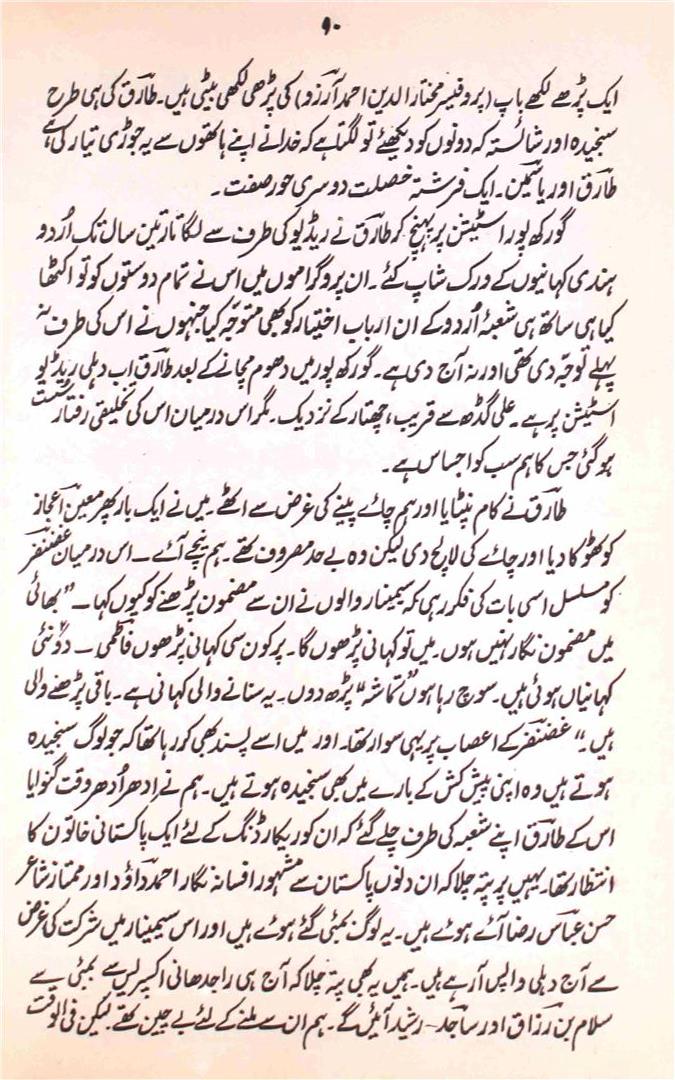 ۹۰
ایک پڑھے لکھے باپ (پروفیسر مختار الدین احمد آرزو) کی پڑھی لکھی بیٹی ہیں۔ طارق کی ہی طرح
سنجیدہ اور شائستہ کہ دونوں کو دیکھئے تو لگتا ہے کہ خدا نے اپنے ہاتھوں سے یہ جوڑی تیار کی ہے
طارق اور یاسمین۔ ایک فرشتہ خصلت دوسری حور صفت۔
گورکھپور اسٹیشن پر پہنچ کر طارق نے ریڈیو کی طرف سے لگاتار تین سال تک اُردو
ہندی کہانیوں کے ورک شاپ کئے۔ ان پروگراموں میں اس نے تمام دوستوں کو تو اکٹھا
کیا ہی ساتھ ہی شعبۂ اُردو کے ان ارباب اختیار کو بھی متوجّہ کیا جنہوں نے اس کی طرف نہ
پہلے توجہ دی تھی اور نہ آج دی ہے۔ گورکھپور میں دھوم مچانے کے بعد طارق اب دہلی ریڈیو
اسٹیشن پر ہے۔ علی گڈھ سے قریب، چھتار کے نزدیک۔ مگر اس درمیان اس کی تخلیقی رفتار سُست
ہو گئی جس کا ہم سب کو احساس ہے۔
طارق نے کام نپٹایا اور ہم چائے پینے کی غرض سے اٹھے۔ میں نے ایک بار پھر معین اعجاز
کو کھٹوکا دیا اور چائے کی لالچ دی لیکن وہ بے حد مصروف تھے۔ ہم نیچے آئے۔ اس درمیان غضنفر
کو مسلسل اسی بات کی فکر رہی کہ سیمینار والوں نے ان سے مضمون پڑھنے کو کیوں کہا۔ "بھائی
میں مضمون نگار نہیں ہوں۔ میں تو کہانی پڑھوں گا۔ پر کون سی کہانی پڑھوں فاطمی ــ دو نئی
کہانیاں ہوئی ہیں۔ سوچ رہا ہوں "تماشہ" پڑھ دوں۔ یہ سنانے والی کہانی ہے۔ باقی پڑھنے والی
ہیں۔" غضنفر کے اعصاب پر یہی سوار تھا۔ اور میں اسے پسند بھی کر رہا تھا کہ جو لوگ سنجیدہ
ہوتے ہیں وہ اپنی پیش کش کے بارے میں بھی سنجیدہ ہوتے ہیں۔ ہم نے اِدھر اُدھر وقت گنوایا
اس کے طارق اپنے شعبہ کی طرف چلے گئے کہ ان کو ریکارڈنگ کے لئے ایک پاکستانی خاتون کا
انتظار تھا۔ یہیں پر پتہ چلا کہ ان دنوں پاکستان سے مشہور افسانہ نگار احمد داؤد اور ممتاز شاعر
حسن عباس رضا آئے ہوئے ہیں۔ یہ لوگ بمبئی گئے ہوئے ہیں اور اس سیمینار میں شرکت کی غرض
سے آج دہلی واپس آ رہے ہیں۔ ہمیں یہ بھی پتہ چلا کہ آج ہی راجدھانی اکسپریس سے بمبئی سے
سلام بن رزاق اور ساجد رشید آئیں گے۔ ہم ان سے ملنے کے لئے بے چین تھے لیکن فی الوقت